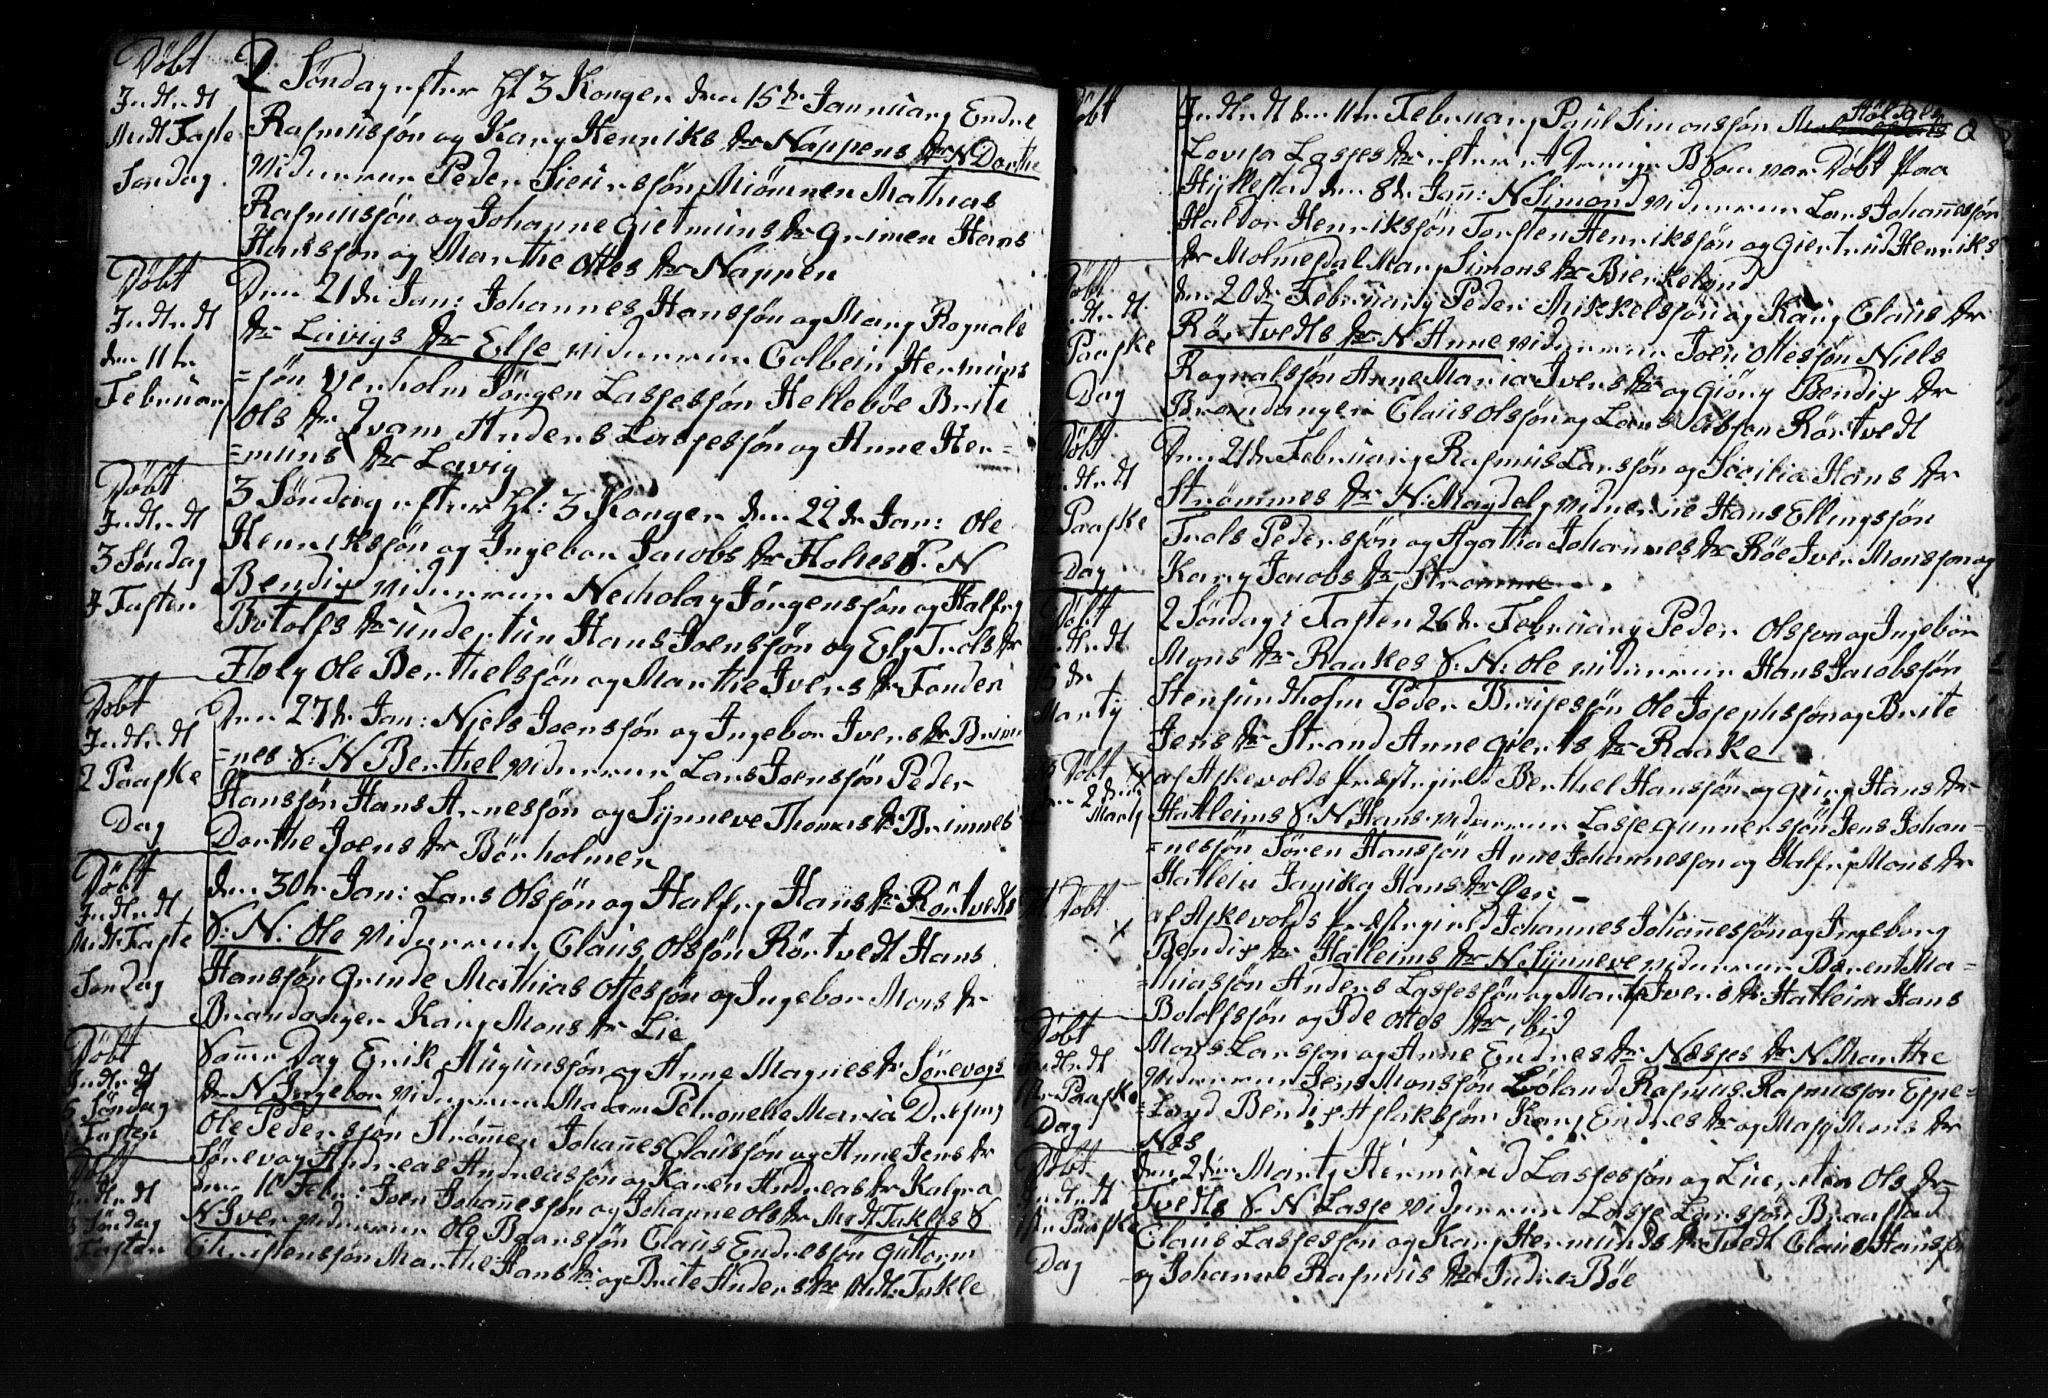 Döbt
Indt: dt
Midt Faste
Søndag
2 Söndag efter Hl 3 Konger den 15de Januarij Endre
Rasmussøn og Kary Henriks dr Nappens dr N Dorthe
vidnerne Peder Siursøn Miömnen Mathias
Rasmussøn og Johanne Gietmuns dr Grimen Hans
Hanssøn og Marthe Ottes dr Nappen
Döbt
Indt: dt
den 11te
Februarij
Den 21de Jan: Johannes Hanssøn og Mary Rognals
dr Lavigs dr Else vidnerne Colbein Hermuns
=søn Verholm Jörgen Lassesøn Hellebøe Brite
Ols dr Qvam Anders Lassesøn og Anne Her=
=muns dr Lavig
Döbt
Indt: dt
3 Søndag
i Fasten
3 Söndag efter Hl: 3 Konger den 22de Jan: Ole
Henrikssøn og Ingebor Jacobs dr Holtes S. N
Bendix vidnerne Nicholay Jörgenssøn og Halfry
Botolfs dr undertun Hans Joenssøn og Ely Trols dr
Flöly Ole Berthelssøn og Marthe Ivers dr Tonder
Döbt
Indt: dt
2 Paaske
Dag
Den 27de Jan: Niels Joenssøn og Ingebor Ivers dr Brim
=nes S: N Berthel vidnerne Lars Joenssøn Peder
Hanssøn Hans Arnessøn og Synneve Thomas dr Brimnes
Dorthe Joens dr Börholmen
Döbt
Indt: dt
Midt Faste
Søndag
den 30te Jan: Lars Olssøn og Halfry Hans dr Rörtvedts
S: N: Ole vidnerne Claus Olssøn Rörtvedt Hans
Hanssøn Grinde Mathias Ottessøn og Ingebor Mons dr
Brandanger Kary Mons dr Lie
Döbt
Indt: dt
6 Söndag
i Fasten
Samme Dag Erik Augunssøn og Anne Magnes dr Sörevogs
dr N Ingebor vidnerne Madam Petronelle Maria Dreysing
Ole Pederssøn Strömmen Johannes Claussøn og Anne Jens dr
Sörevog Andreas Andreassøn og Karen Andreas dr Kalgra
Döbt
Indt: dt
3 Søndag
Fasten
den 10 Febr: Joen Johannessøn og Johanne Ols dr Midt Takles S
N Iver vidnerne Ole Baarssøn Claus Endressøn Guttorm
Christenssøn Marthe Hans dr og Brite Anders dr Midt: Takle
Döbt
Indt: dt den 11te Februarij Paul Simonssøn Höldals
Lovisa Lasses dr efter et Drenge B som var Döbt Paa
Hyllestad den 8de Jan: N Simon vidnerne Lars Johannessøn
Haldor Henrikssøn Torsten Henrikssøn og Giertrud Henriks
dr Molmesdal Mary Simons dr Bierkeland
Döbt
Indt: dt
Paaske
Dag
den 20de Februarij Peder Mikkelssøn og Kary Claus dr
Rörtvedts dr N Anne vidnerne Joen Ottessøn Niels
Rognalssøn Anne Maria Ivers dr og Giöry Bendix dr
Brandanger Claus Olssøn og Lars Rörtvedt
Döbt
Indt: dt
2 Paaske
Dag
Den 21de Februarij Rasmus Larssøn og Sicilia Hans dr
Strömmes dr N: Magdely vidnerne Hans Ellingssøn
Trols Pederssøn og Agatha Johannes dr Röe Iver Monssøn og
Kary Jacobs dr Strömme
Döbt
Indt: dt
15de
Marty
2 Söndag i Fasten 26de Februarij Peder Olssøn og Ingebor
Mons dr Raakes S: N: Ole vidnerne Hans Jacobssøn
Stensundholm Peder Brusessøn Ole Josephssøn og Brite
Jens dr Strand Anne Gierts dr Raake
Döbt X
den 2den
Marty
af Askevolds Præstegield Berthel Hanssøn og Giöry Hans dr
Hatleims S: N. Hans vidnerne Lasse Gunnerssøn Jens Johan=
=nessøn Sören Hanssøn Anne Johannessøn og Halfry Mons dr
Hatleim Janika Hans dr Öen
Döbt
X
af Askevolds Præstegield Johannes Johannessøn og Ingeborg
Bendix dr Hatleims dr N Synneve vidnerne Berent Ma=
=thiassøn Anders Lassessøn og Marthe Ivers dr Hatleim Hans
Botolfssøn og Ide Ottes dr ibid
Döbt
Indt: dt
Paaske
Dag
Mons Larssøn og Anne Endres dr Næsses dr N Marthe
vidnerne Jens Monssøn Löland Rasmus Rasmussøn Eppe=
=land Bendix Aslakssøn Kary Endres dr og Masy Mons dr
Næs
Döbt
Indt: dt
Paaske
Dag
den 2den Marty Hermund Lassessøn og Lucretia Ols dr
Tvedts S. N. Lasse vidnerne Lasse Larssøn Braastad
Claus Lassessøn og Kary Hermunds dr Tvedt Claus Hanssøn
og Johanne Rasmus dr Indre Böe